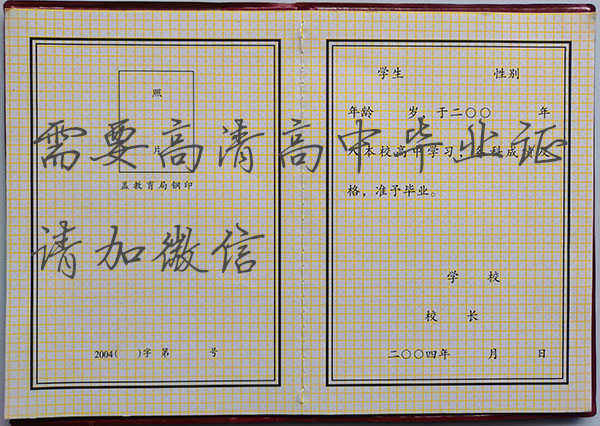 照
片
盖教育局钢印
2004( )字第 号
学生 性别
年龄 岁 于二〇〇 年
入本校高中学习，各科成绩及
格，准予毕业。
学 校
校 长
二〇〇四年 月 日
需要高清高中毕业证
请加微信